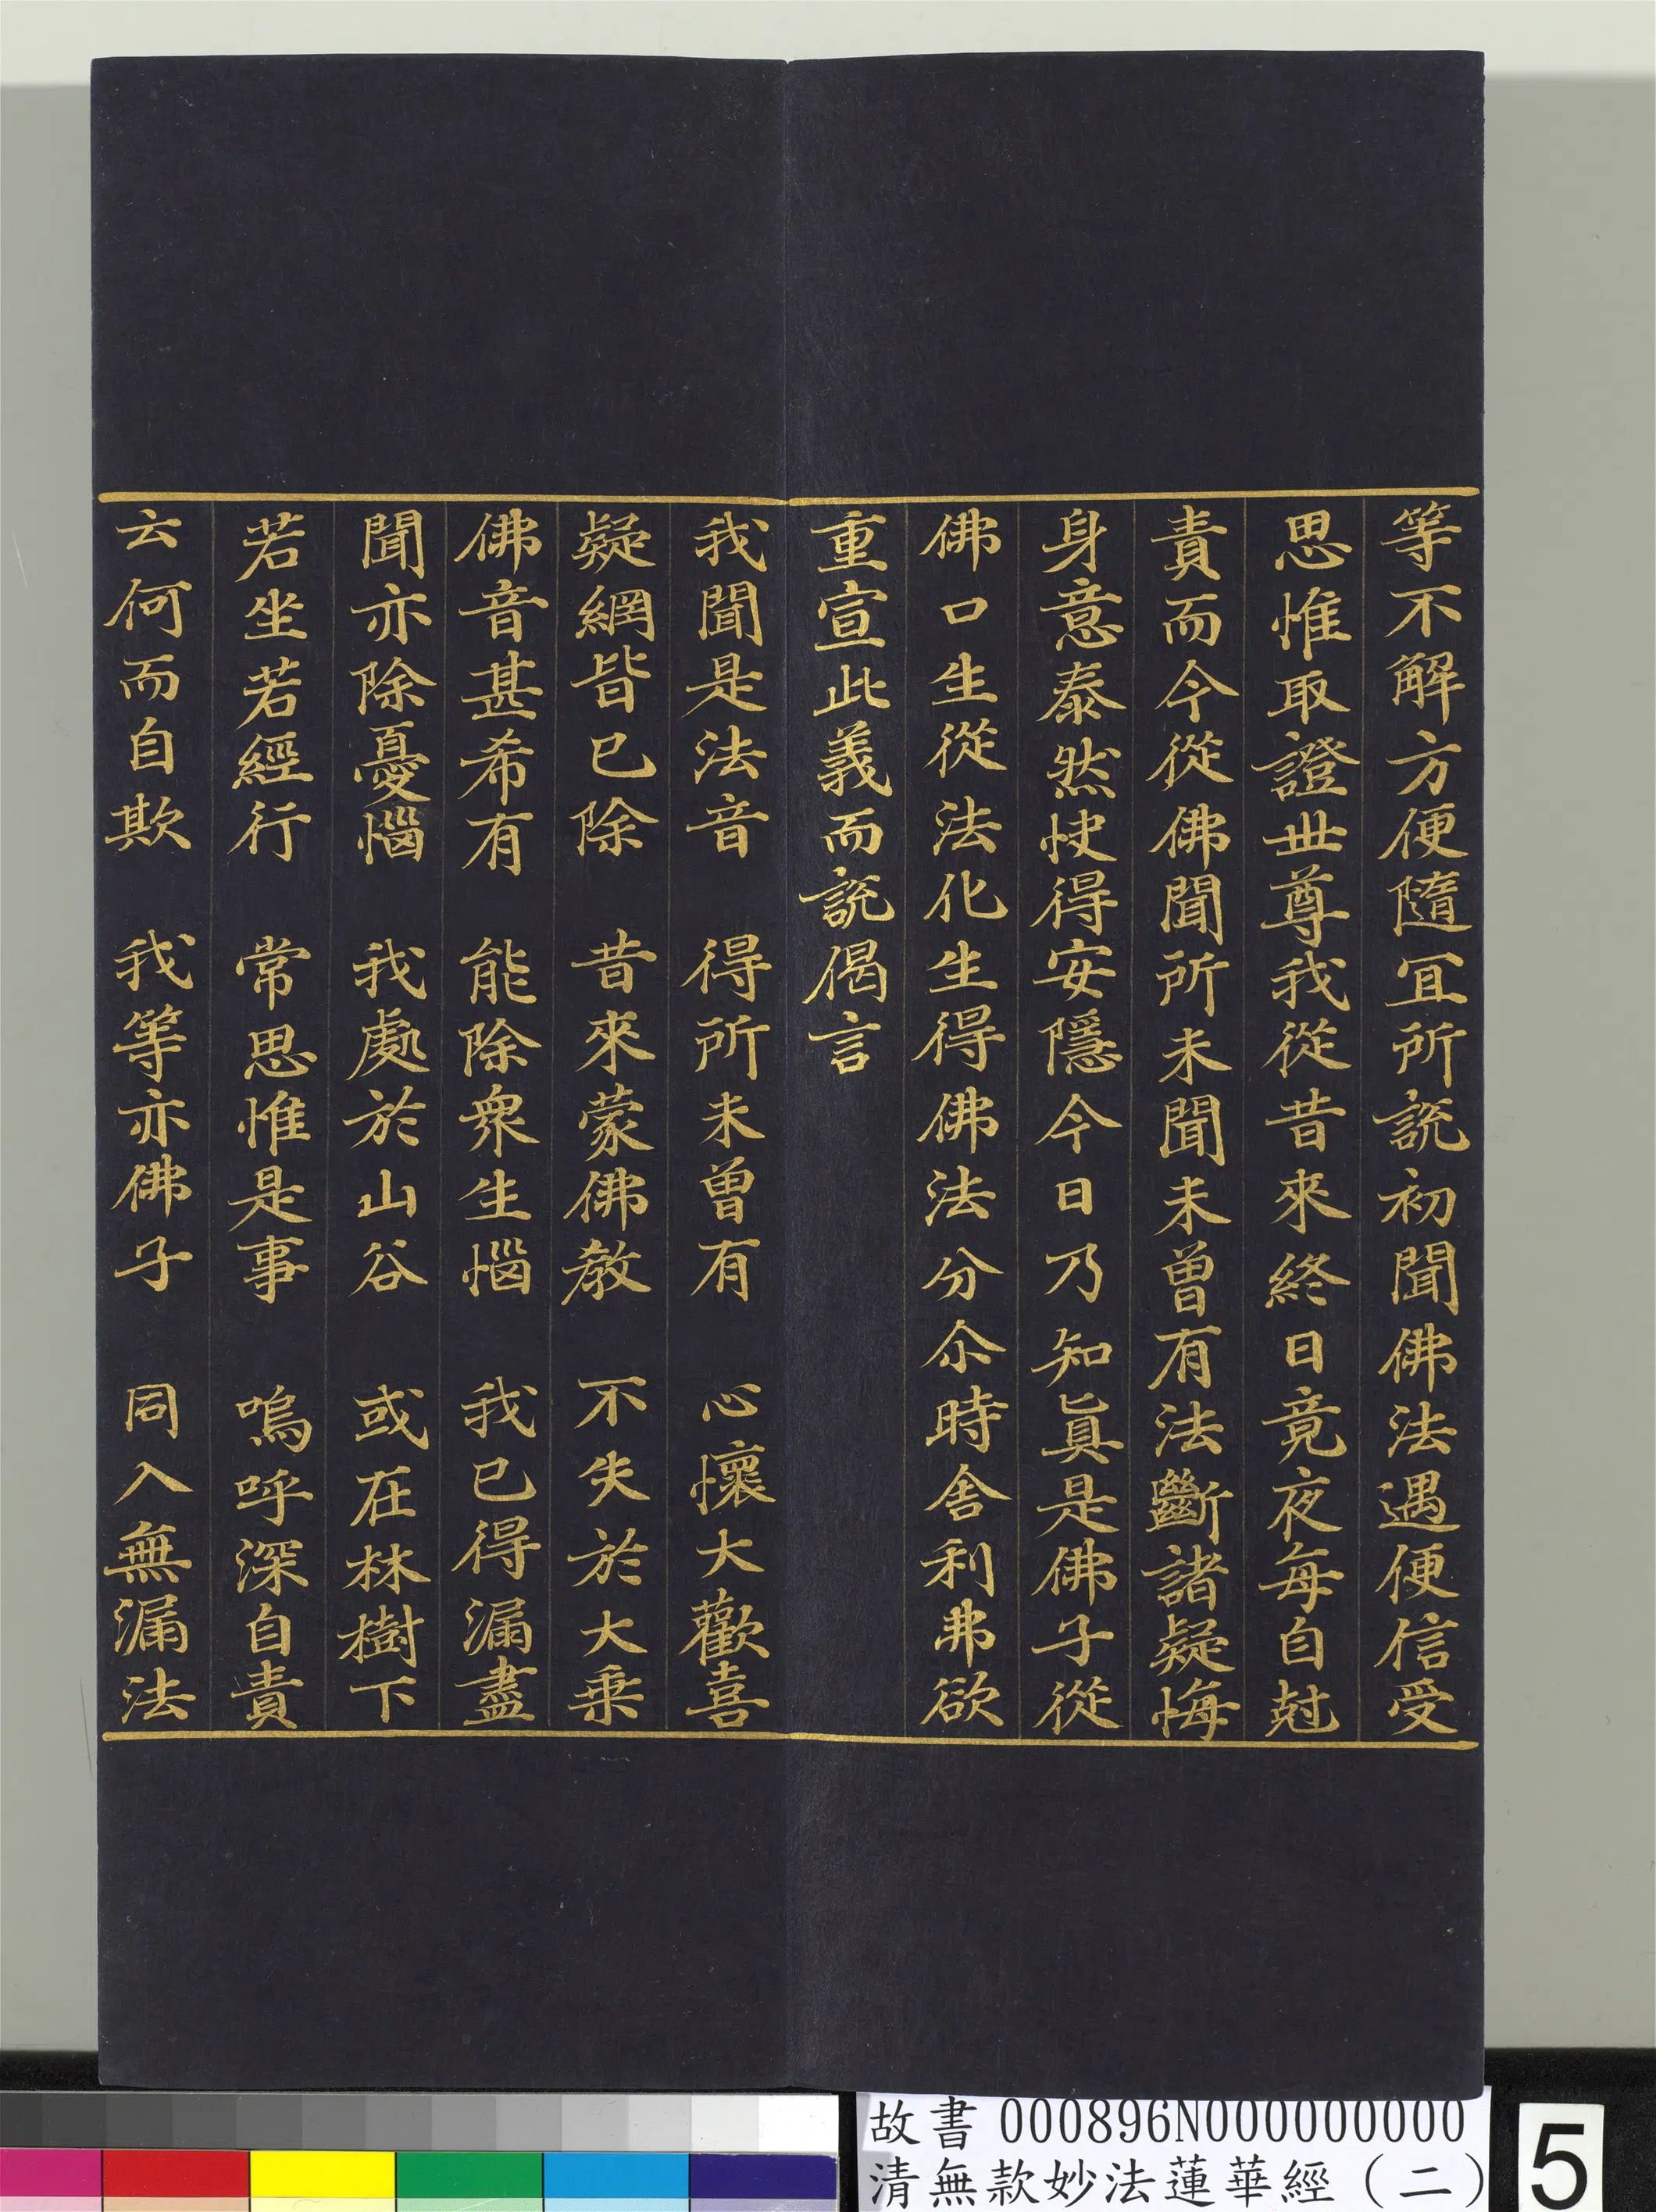 等不解方便隨冝所説初聞佛法遇便信受
思惟取證世尊我從昔來終日竟夜每自尅
責而今從佛聞所未聞未曽有法斷諸疑悔
身意泰然快得安隱今日乃知眞是佛子從
佛口生從法化生得佛法分尒時舍利弗欲
重宣此義而説偈言
我聞是法音　得所未曽有　心懷大歡喜
疑網皆已除　昔來蒙佛教　不失於大乗
佛音甚希有　能除衆生惱　我已得漏盡
聞亦除憂惱　我處於山谷　或在林樹下
若坐若經行　常思惟是事　嗚呼深自責
云何而自欺　我等亦佛子　同入無漏法
故書 000896N000000000
清無款妙法蓮華經（二）
5